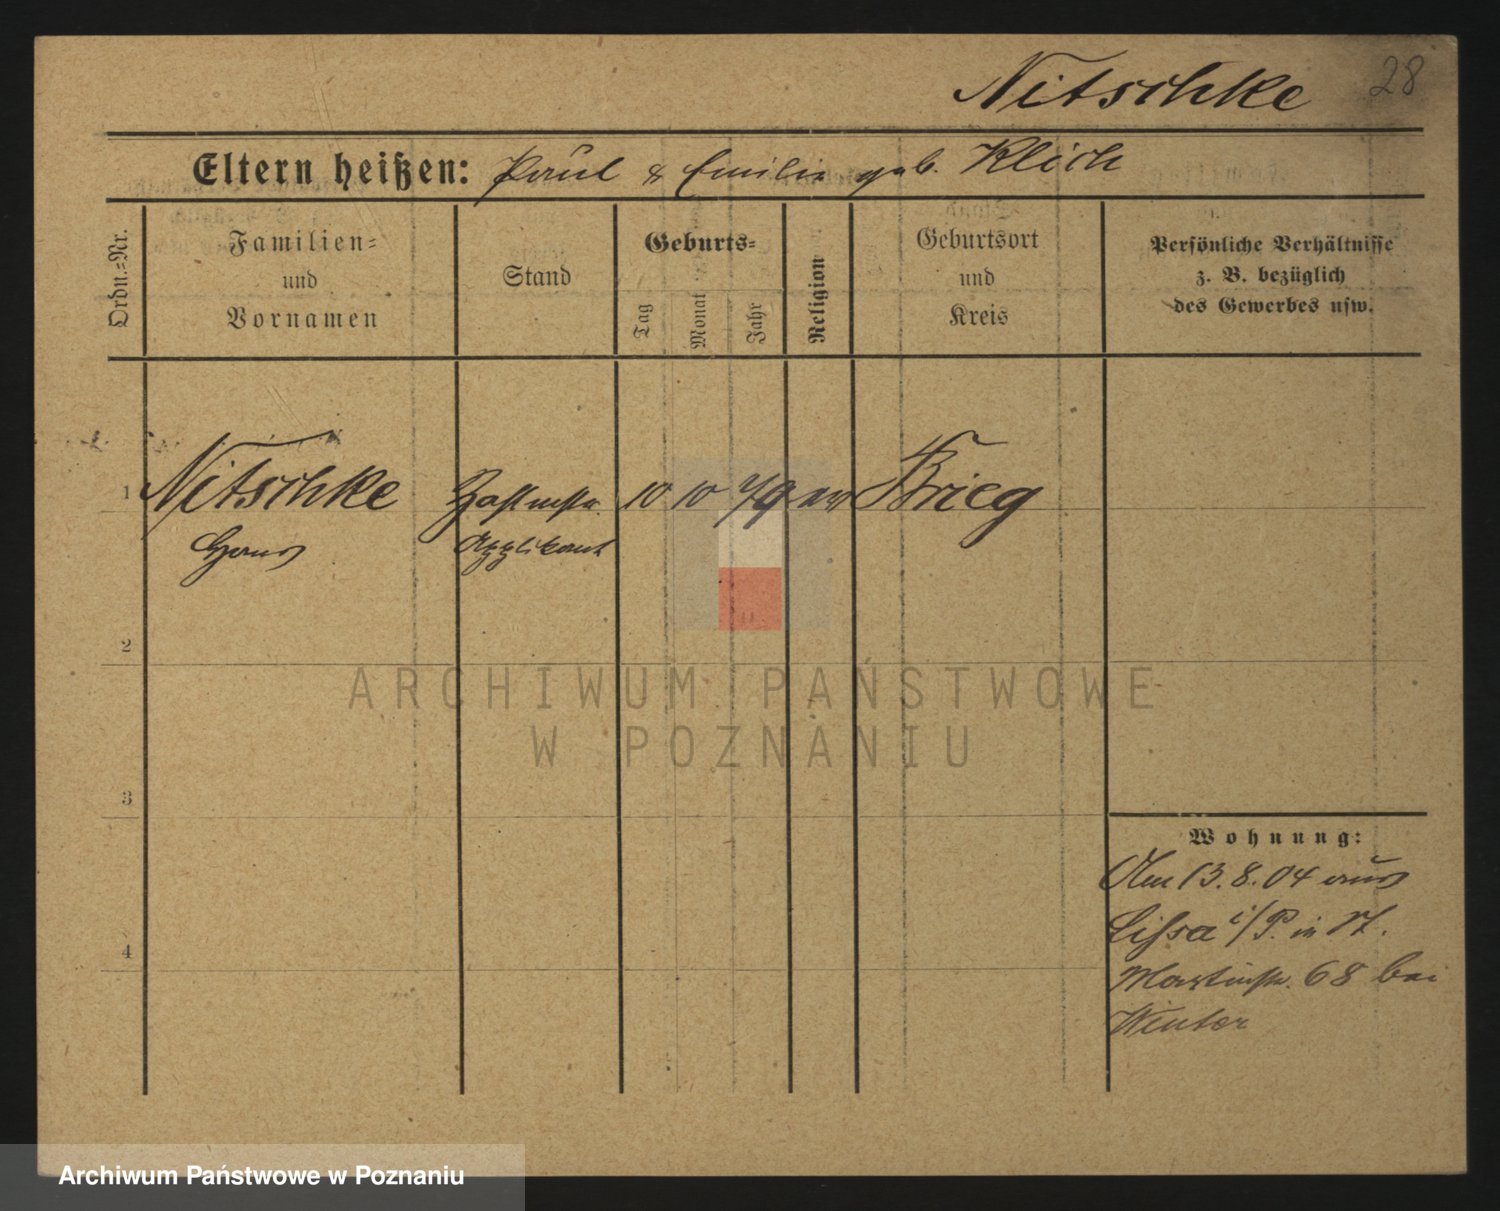 Nitschke 28
Eltern heißen: Paul & Emilie geb. Klich
Ordn.=Nr.
Familien=
und
Vornamen
Stand
Geburts=
Tag
Monat
Jahr
Religion
Geburtsort
und
Kreis
Persönliche Verhältnisse
z. B. bezüglich
des Gewerbes usw.
1 Nitschke 10 10 79 ev Brieg
Hans Applikant
2
3
4
Wohnung:
Am 13.8.04 aus
Lissa i/P. in St.
Martinstr. 68 bei
Winter
ARCHIWUM PAŃSTWOWE
W POZNANIU
Archiwum Państwowe w Poznaniu